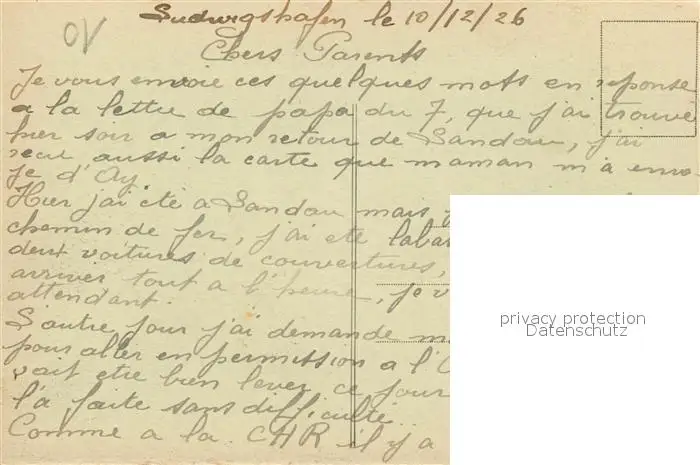 Ludwigshafen le 10/12/26
Chers Parents
Je vous envoie ces quelques mots en reponse
a la lettre de papa du 7, que j'ai trouve
hier soir a mon retour de Sandau, j'ai
recu aussi la carte que maman m'a envo-
ye d'Ay
Hier j'ai été a Sandau mais
chemin de fer, j'ai eté labas
deux voitures de couvertures,
arriver tout a l'heure, je v
attendant.
L'autre jour j'ai demande m
pour aller en permission a l'
vait etre bien lever ce jour
l'a faite sans difficulté
Comme a la CHR il y a
privacy protection
Datenschutz